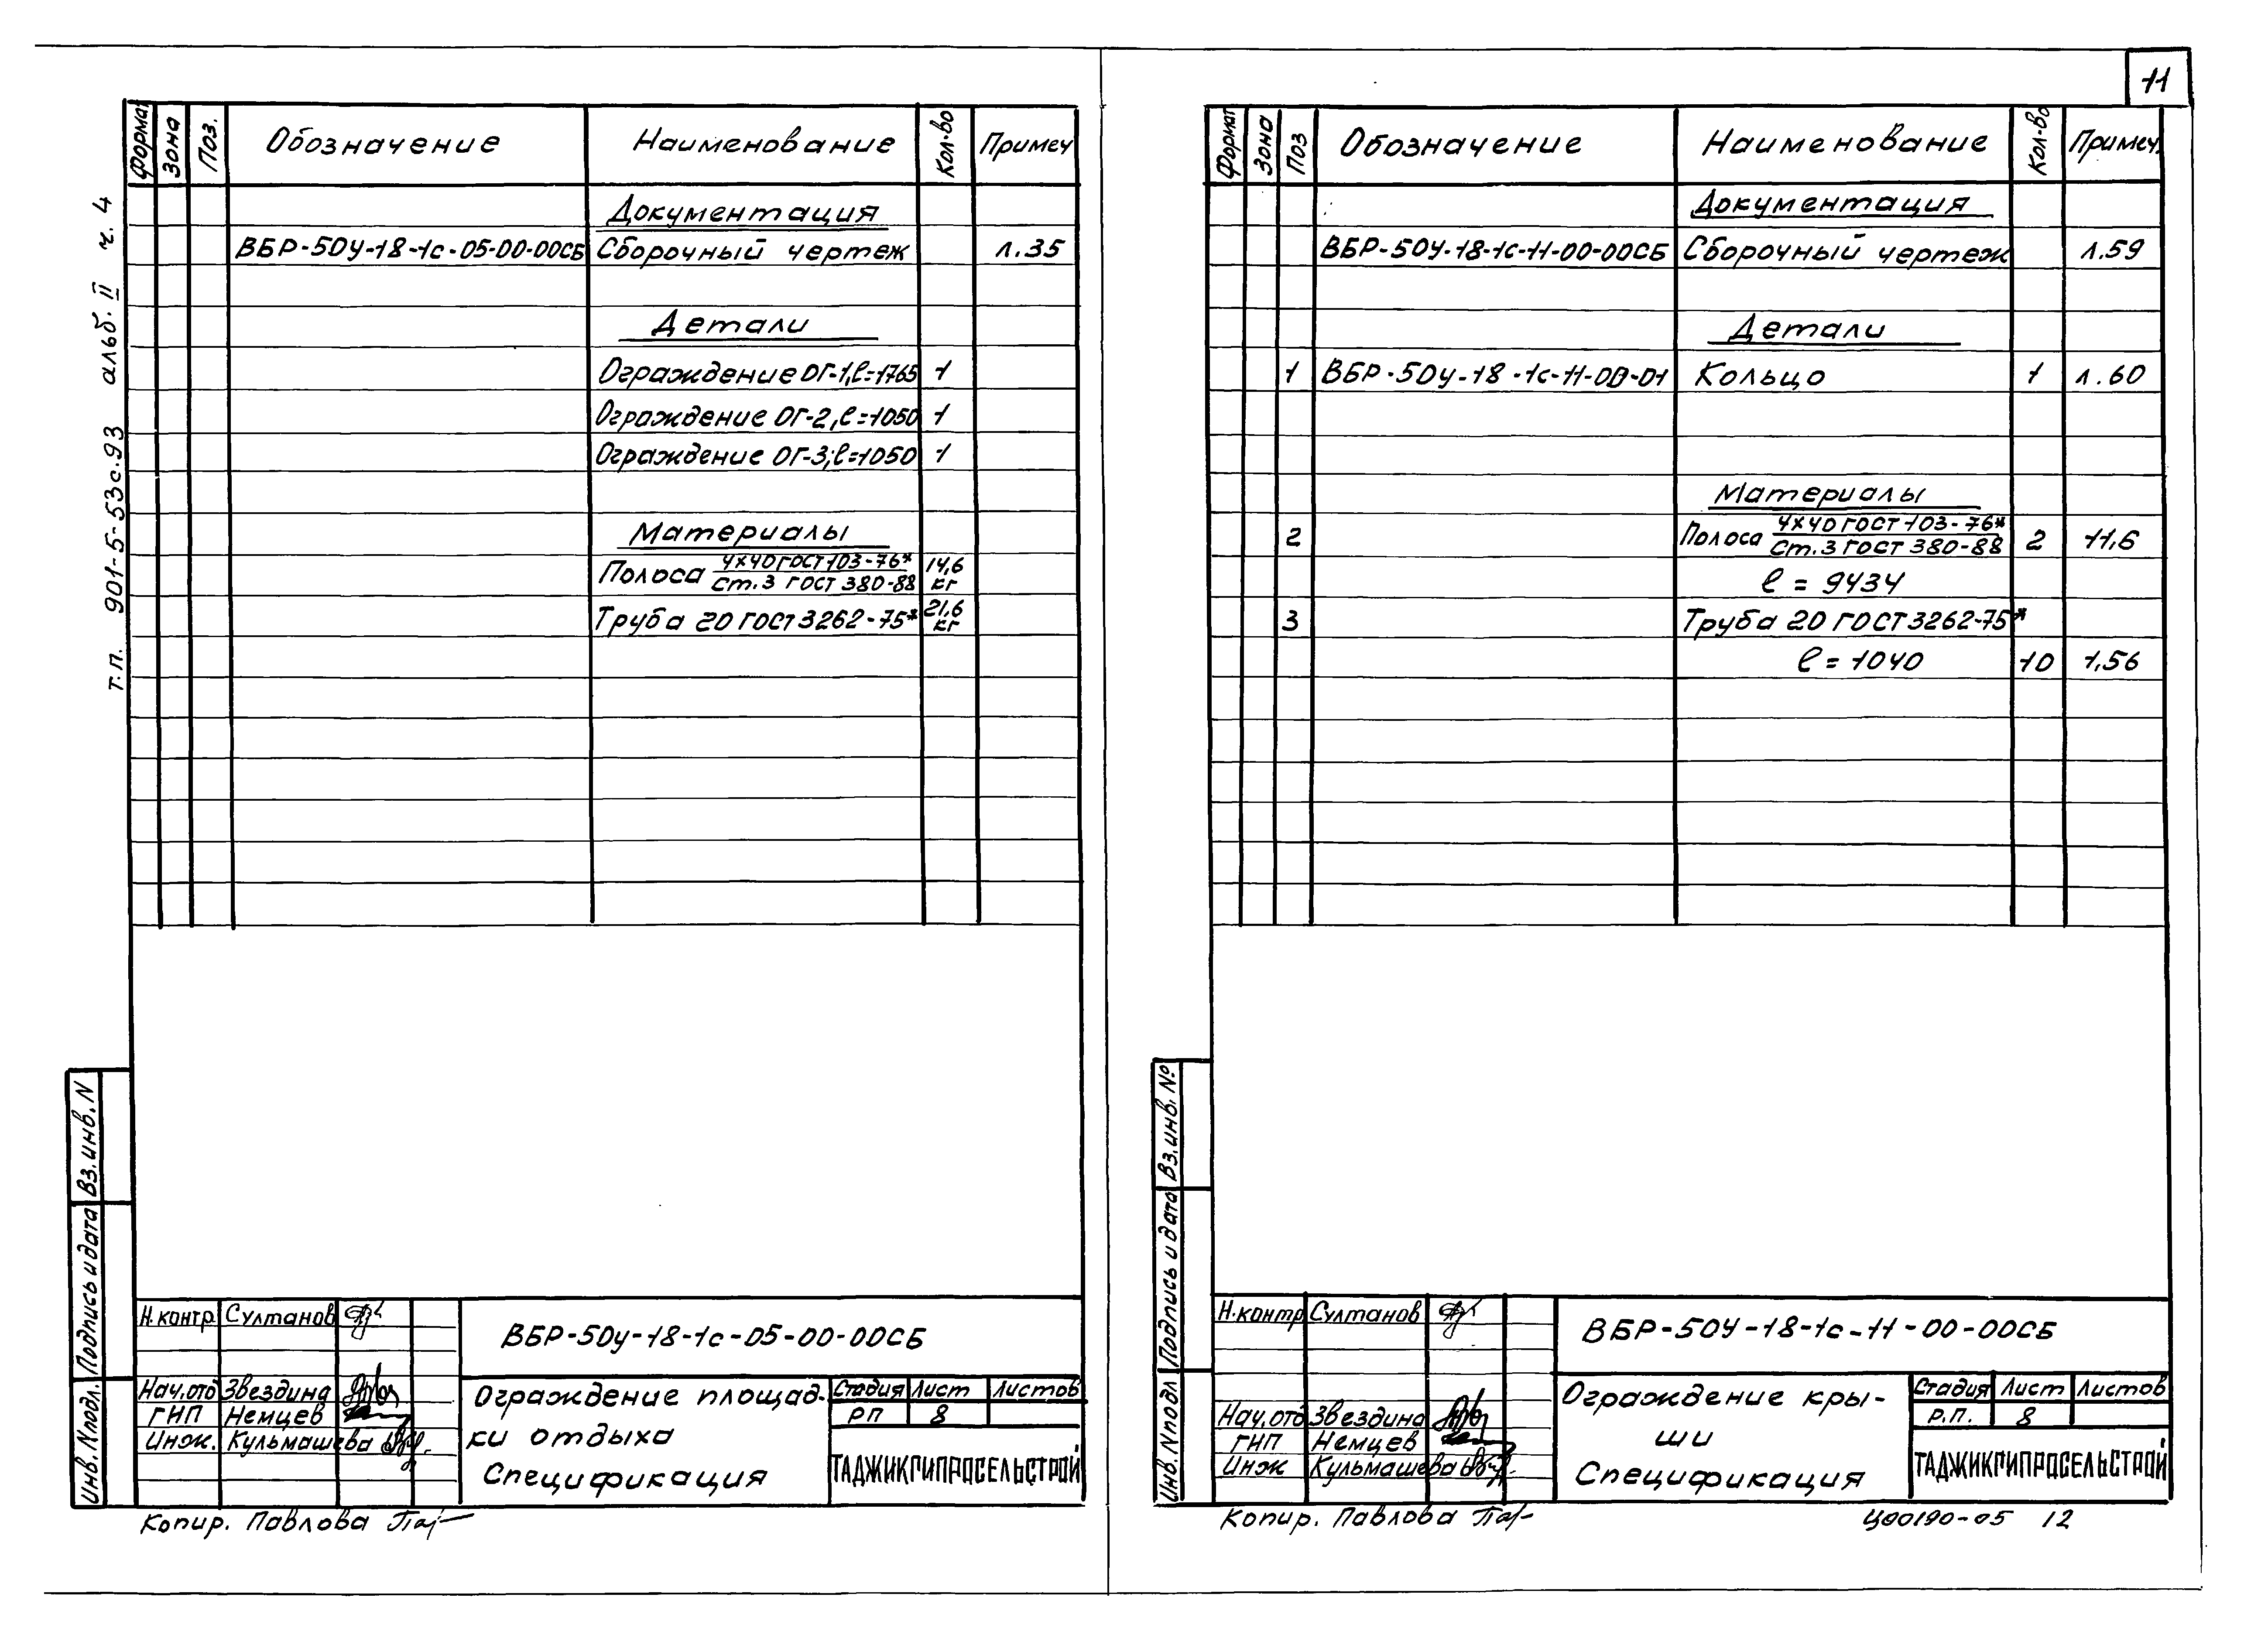 11
т.п. 901-5-53с.93 альб. II ч. 4
Формат Зона Поз. Обозначение Наименование Кол-во Примеч
Документация
ВБР-50у-18-1с-05-00-00СБ Сборочный чертеж л.35
Детали
Ограждение ОГ-1, l=1765 1
Ограждение ОГ-2, l=1050 1
Ограждение ОГ-3, l=1050 1
Материалы
Полоса 4х40 ГОСТ 103-76* 14,6
ст.3 ГОСТ 380-88 кг
Труба 20 ГОСТ 3262-75* 21,6 кг
Вз. инв. N
Подпись и дата
Инв. N подл.
Н.контр Султанов
Нач.отд Звездина
ГИП Немцев
Инж. Кульмашева
ВБР-50у-18-1с-05-00-00СБ
Ограждение площад-
ки отдыха
Спецификация
Стадия Лист Листов
РП 8
ТАДЖИКГИПРОСЕЛЬСТРОЙ
Копир. Павлова
Формат Зона Поз Обозначение Наименование Кол-во Примеч.
Документация
ВБР-50У-18-1с-11-00-00СБ Сборочный чертеж л.59
Детали
1 ВБР-50у-18-1с-11-00-01 Кольцо 1 л.60
Материалы
2 Полоса 4х40 ГОСТ 103-76* 2 11,6
Ст.3 ГОСТ 380-88
l = 9434
3 Труба 20 ГОСТ 3262-75*
l = 1040 10 1,56
Вз. инв. №
Подпись и дата
Инв. N подл
Н.контр Султанов
Нач.отд Звездина
ГИП Немцев
Инж Кульмашева
ВБР-50У-18-1с-11-00-00СБ
Ограждение кры-
ши
Спецификация
Стадия Лист Листов
Р.П. 8
ТАДЖИКГИПРОСЕЛЬСТРОЙ
Копир. Павлова
Ц00190-05 12